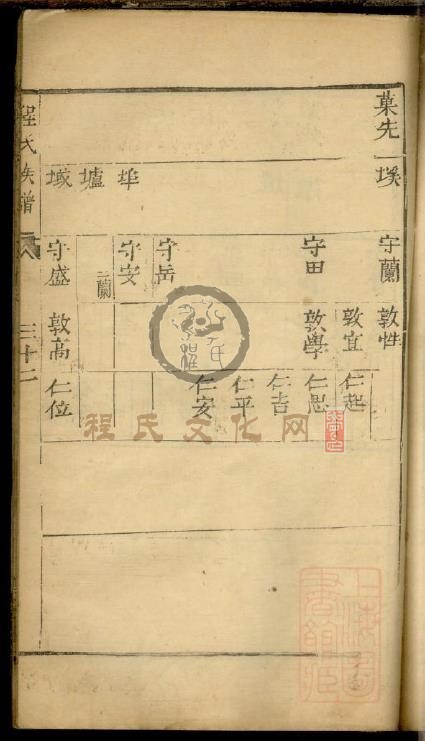 菓先
埃
埠
壚
域
守蘭
守田
守岳
守安
二蘭
守盛
敦性
敦宜
敦學
敦高
仁起
仁思
仁吉
仁平
仁安
仁位
程氏族譜
三十二
程氏文化网